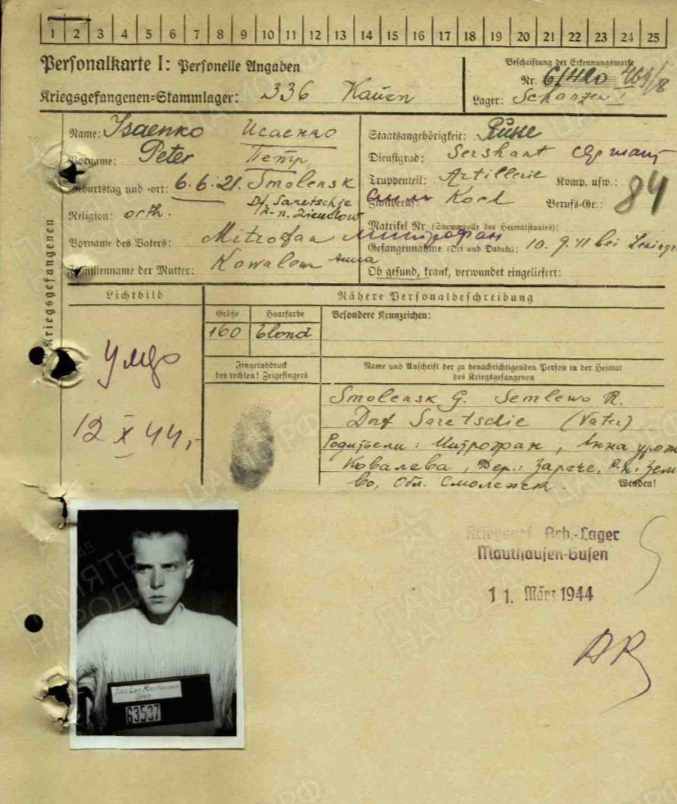 1 2 3 4 5 6 7 8 9 10 11 12 13 14 15 16 17 18 19 20 21 22 23 24 25
Personalkarte I: Personelle Angaben
Kriegsgefangenen=Stammlager: 336 Kauen
Beschriftung der Erkennungsmarke
Nr.
Lager:
Name: Isaenko Исаенко
Vorname: Peter Петр
Geburtstag und -ort: 6.6.21. Smolensk
Df. Saretschje
Religion: orth.
Vorname des Vaters: Mitrofan Митрофан
Familienname der Mutter: Kowalew Anna
Staatsangehörigkeit: Russe
Dienstgrad: Sershant сержант
Truppenteil: Artillerie Komp. usw.:
Zivilberuf: Koch Berufs-Gr.: 84
Matrikel Nr. (Stammrolle des Heimatstaates):
Gefangennahme (Ort und Datum): 10.9.41 bei
Ob gesund, krank, verwundet eingeliefert:
Kriegsgefangenen
Lichtbild
Nähere Personalbeschreibung
Größe Haarfarbe Besondere Kennzeichen:
160 blond
Fingerabdruck
des rechten! Zeigefingers
Name und Anschrift der zu benachrichtigenden Person in der Heimat
des Kriegsgefangenen
Smolensk G. Semlewo R.
Dorf Saretschie (Vater)
Родители: Митрофан, Анна урож
Ковалева, Дер.: Заречe,
во, Обл. Смоленск.
Wenden!
умер
12 X 44.
Kriegsgef. Arb.-Lager
Mauthausen-Gusen
11. März 1944
63537
ПАМЯТЬ
НАРОДА